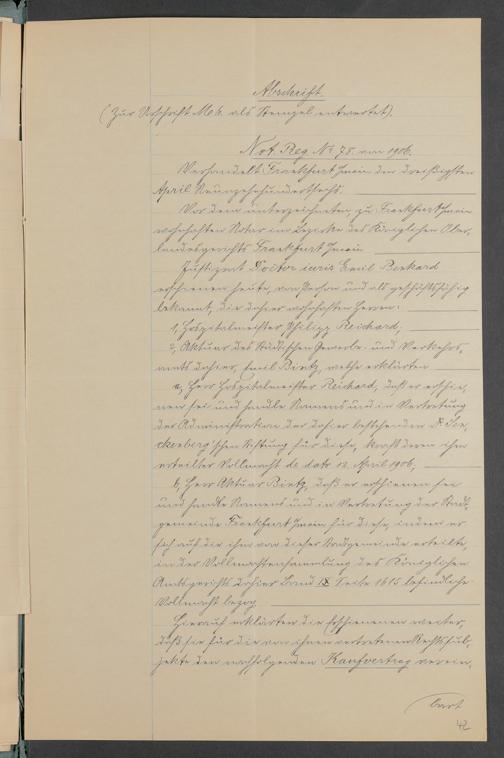 Abschrift.
(Zur Urschrift M 6. als Stempel entwertet).
Not. Reg. No 78. von 1906.
Verhandelt Frankfurt Main den dreißigsten
April Neunzehnhundertsechs.
Vor dem unterzeichneten, zu Frankfurt Main
wohnhaften Notar im Bezirke des Königlichen Ober-
landesgerichts Frankfurt Main
Justizrat Doctor iuris Emil Benkard
erschienen heute, von Person und als geschäftsfähig
bekannt, die dahier wohnhaften Herren:
1, Hospitalmeister Philipp Reichard,
2, Aktuar des Städtischen Gewerbe- und Verkehrs-
amts dahier, Emil Bintz, welche erklärten
a, Herr Hospitalmeister Reichard, daß er erschie-
nen sei und handle Namens und in Vertretung
der Administration der dahier bestehenden Dr Sen-
ckenberg'schen Stiftung für diese, kraft deren ihm
erteilter Vollmacht de dato 12. April 1906,
b, Herr Aktuar Bintz, daß er erschienen sei
und handle Namens und in Vertretung der Stadt-
gemeinde Frankfurt Main für diese, indem er
sich auf die ihm von dieser Stadtgemeinde erteilte,
in der Vollmachtensammlung des Königlichen
Amtsgerichts dahier Band IX Seite 1615 befindliche
Vollmacht bezog.
Hierauf erklärten die Erschienenen weiter,
daß sie für die von ihnen vertretenen Rechtssub-
jekte den nachfolgenden Kaufvertrag verein-
bart
42